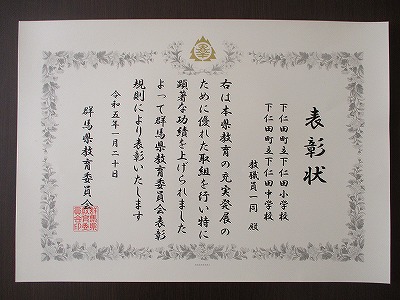 表彰状
下仁田町立下仁田小学校
下仁田町立下仁田中学校
教職員一同 殿
右は本県教育の充実発展の
ために優れた取組を行い特に
顕著な功績を上げられました
よって群馬県教育委員会表彰
規則により表彰いたします
令和五年一月二十日
群馬県教育委員会
群馬県
教育委
員会印